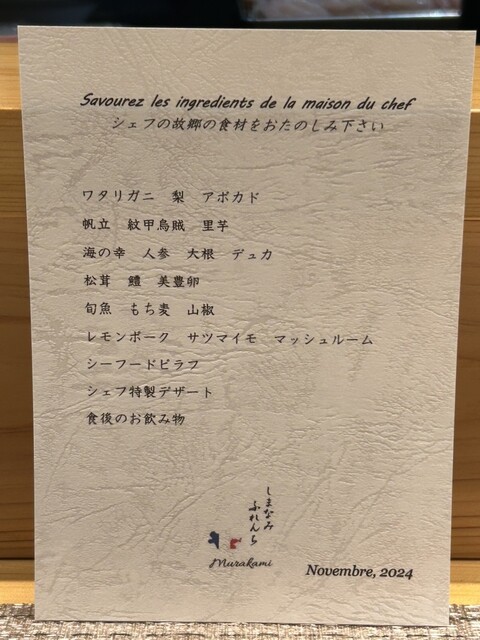 Savourez les ingredients de la maison du chef
シェフの故郷の食材をおたのしみ下さい
ワタリガニ 梨 アボカド
帆立 紋甲烏賊 里芋
海の幸 人参 大根 デュカ
松茸 鱧 美豊卵
旬魚 もち麦 山椒
レモンポーク サツマイモ マッシュルーム
シーフードピラフ
シェフ特製デザート
食後のお飲み物
しまなみ
ふれんち
Murakami
Novembre, 2024